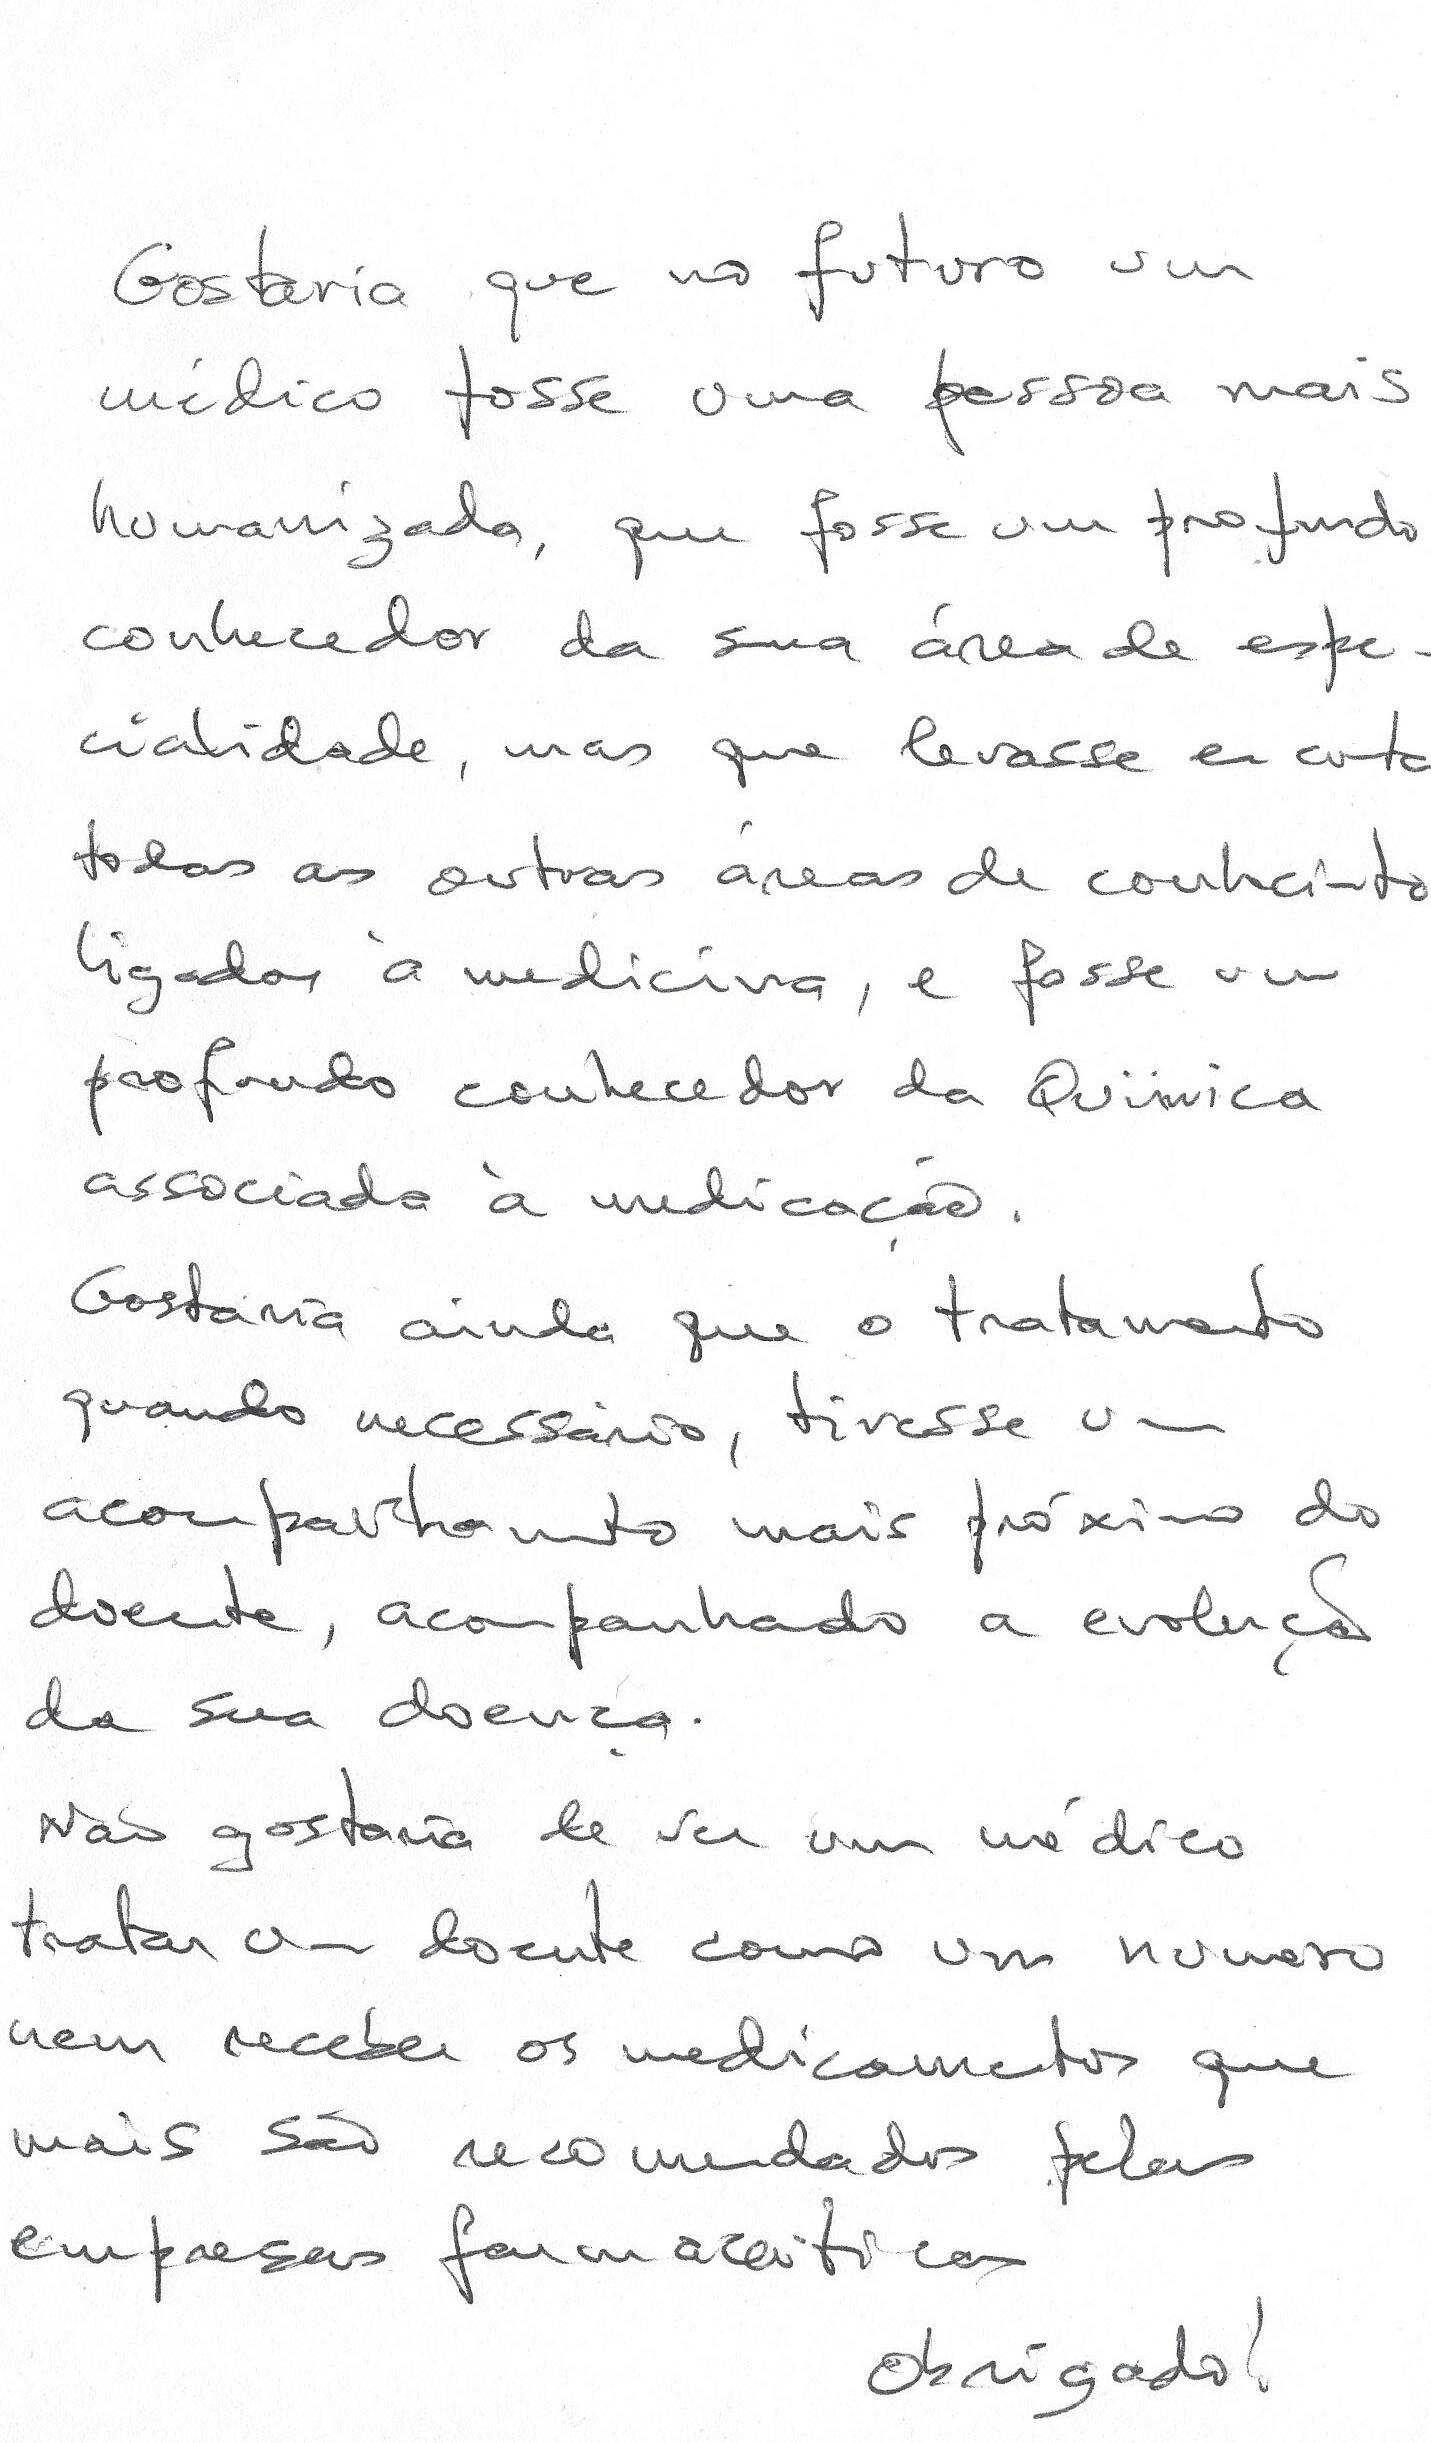 Gostaria que no futuro um
médico fosse uma pessoa mais
humanizada, que fosse um profundo
conhecedor da sua área de espe-
cialidade, mas que levasse em conta
todas as outras áreas de conhecimento
ligadas à medicina, e fosse um
profundo conhecedor da Química
associada à medicação.
Gostaria ainda que o tratamento
quando necessário, tivesse um
acompanhamento mais próximo do
doente, acompanhado a evolução
da sua doença.
Não gostaria de ver um médico
tratar um doente como um numero
nem receber os medicamentos que
mais são recomendados pelas
empresas farmaceiticas
Obrigado!